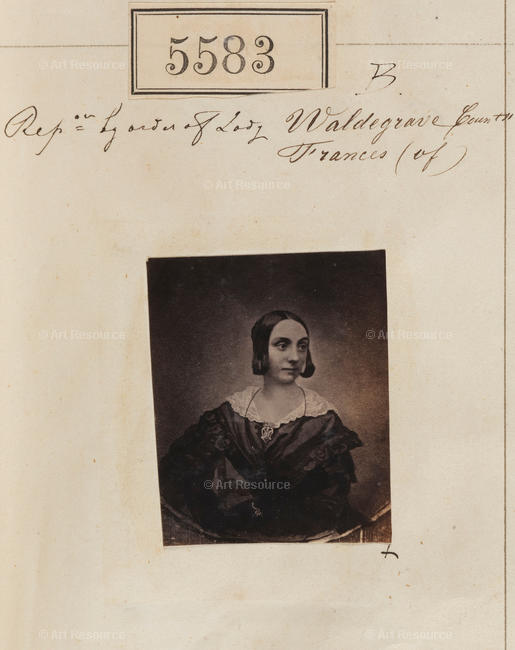 5583
B.
Repon by order of Lady Waldegrave Countss
Frances (of)
© Art Resource
© Art Resource
© Art Resource
© Art Resource
© Art Resource
© Art Resource
© Art Resource
© Art Resource